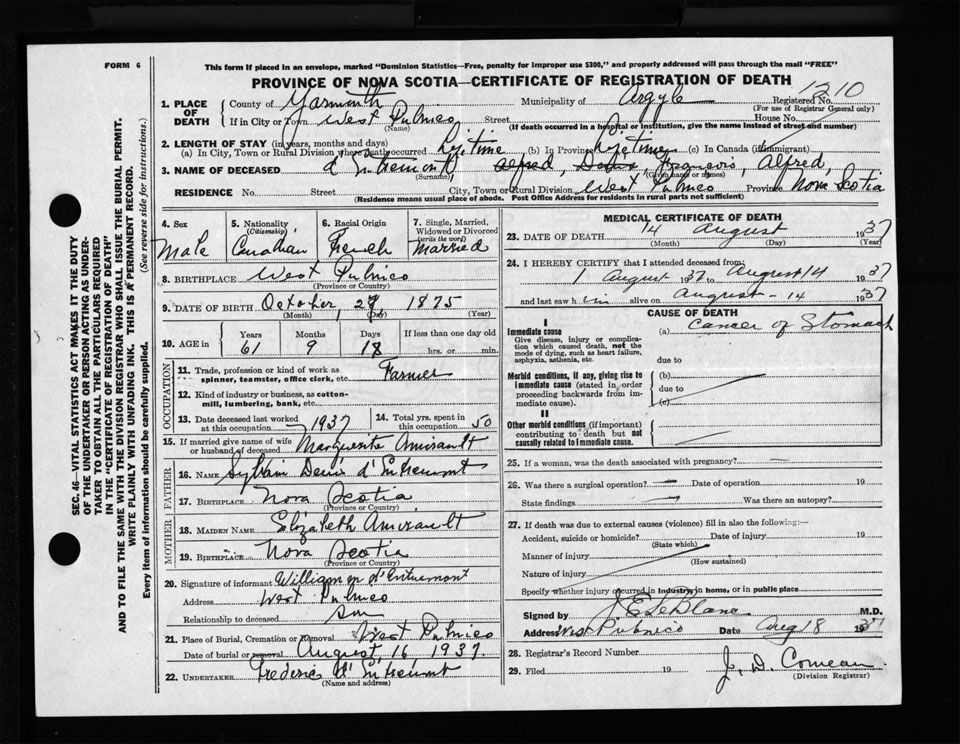 FORM 6
This form if placed in an envelope, marked "Dominion Statistics—Free, penalty for improper use $300," and properly addressed will pass through the mail "FREE"
PROVINCE OF NOVA SCOTIA—CERTIFICATE OF REGISTRATION OF DEATH
1. PLACE OF DEATH
County of Yarmouth Municipality of Argyle Registered No. 1210
(For use of Registrar General only)
If in City or Town West Pubnico Street House No.
(Name) (If death occurred in a hospital or institution, give the name instead of street and number)
2. LENGTH OF STAY (in years, months and days)
(a) In City, Town or Rural Division where death occurred Lifetime (b) In Province Lifetime (c) In Canada (if immigrant)
3. NAME OF DECEASED d'Entremont Alfred, Denis François, Alfred,
(Surname) (Given name or names)
RESIDENCE No. Street City, Town or Rural Division West Pubnico Province Nova Scotia
(Residence means usual place of abode. Post Office Address for residents in rural parts not sufficient)
4. Sex Male
5. Nationality (Citizenship) Canadian
6. Racial Origin French
7. Single, Married, Widowed or Divorced (write the word) Married
8. BIRTHPLACE West Pubnico
(Province or Country)
9. DATE OF BIRTH October, 27, 1875
(Month) (Day) (Year)
10. AGE in Years 61 Months 9 Days 18 If less than one day old hrs. or min.
OCCUPATION
11. Trade, profession or kind of work as spinner, teamster, office clerk, etc. Farmer
12. Kind of industry or business, as cotton-mill, lumbering, bank, etc.
13. Date deceased last worked at this occupation 1937
14. Total yrs. spent in this occupation 50
15. If married give name of wife or husband of deceased Marguerite Amirault
FATHER
16. NAME Sylvain Denis d'Entremont
17. BIRTHPLACE Nova Scotia
(Province or Country)
MOTHER
18. MAIDEN NAME Elizabeth Amirault
19. BIRTHPLACE Nova Scotia
(Province or Country)
20. Signature of informant William d'Entremont
Address West Pubnico
Relationship to deceased Son
21. Place of Burial, Cremation or Removal West Pubnico
Date of burial or removal August 16 1937.
22. UNDERTAKER Frederic d'Entremont
(Name and address)
MEDICAL CERTIFICATE OF DEATH
23. DATE OF DEATH 14 August 1937
(Month) (Day) (Year)
24. I HEREBY CERTIFY that I attended deceased from:
1 August 1937 August 14 1937
and last saw him alive on August - 14 1937
CAUSE OF DEATH
I
Immediate cause
Give disease, injury or complication which caused death, not the mode of dying, such as heart failure, asphyxia, asthenia, etc.
(a) Cancer of Stomach
due to
Morbid conditions, if any, giving rise to immediate cause (stated in order proceeding backwards from immediate cause).
(b)
due to
(c)
II
Other morbid conditions (if important) contributing to death but not causally related to immediate cause.
25. If a woman, was the death associated with pregnancy? —
26. Was there a surgical operation? — Date of operation 19
State findings — Was there an autopsy?
27. If death was due to external causes (violence) fill in also the following:—
Accident, suicide or homicide? Date of injury 19
(State which)
Manner of injury
(How sustained)
Nature of injury
Specify whether injury occurred in industry, in home, or in public place
Signed by J E LeBlanc M.D.
Address West Pubnico Date Aug 18 1937
28. Registrar's Record Number
29. Filed 19 J. D. Comeau
(Division Registrar)
SEC. 46—VITAL STATISTICS ACT MAKES IT THE DUTY
OF THE UNDERTAKER OR PERSON ACTING AS UNDER-
TAKER TO OBTAIN ALL THE PARTICULARS REQUIRED
IN THE "CERTIFICATE OF REGISTRATION OF DEATH"
AND TO FILE THE SAME WITH THE DIVISION REGISTRAR WHO SHALL ISSUE THE BURIAL PERMIT.
WRITE PLAINLY WITH UNFADING INK. THIS IS A PERMANENT RECORD.
Every item of information should be carefully supplied. (See reverse side for instructions.)